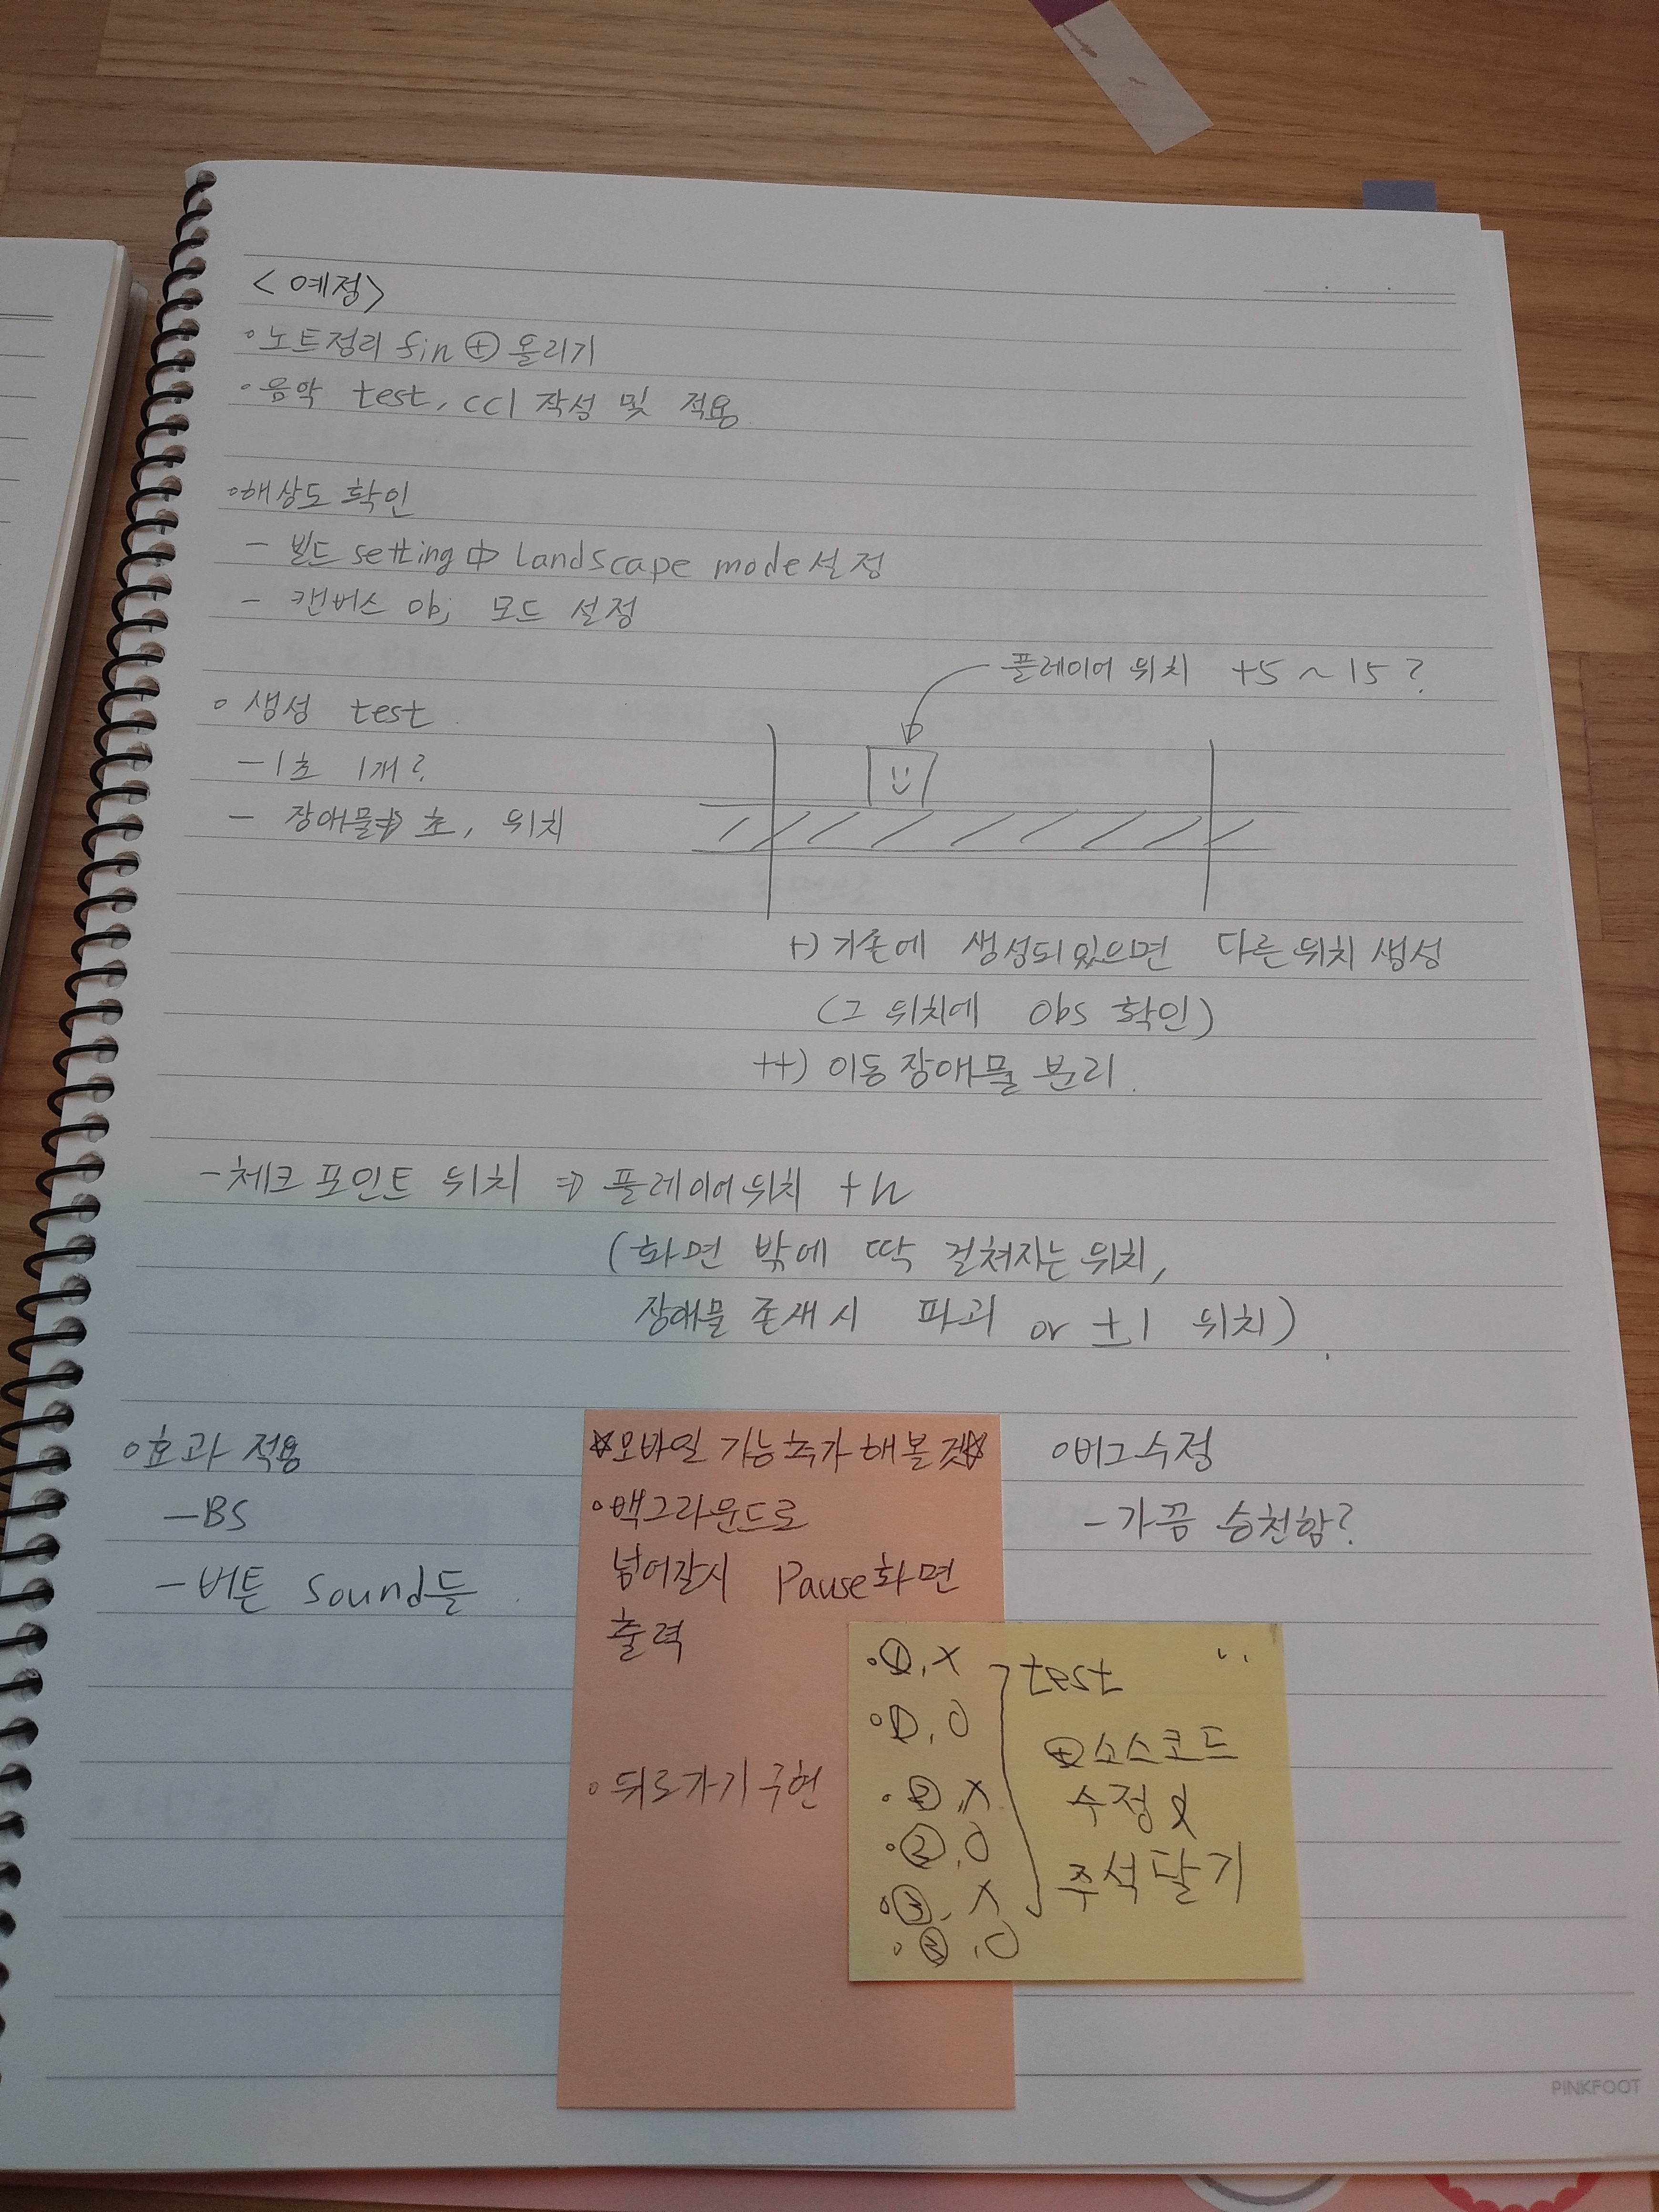 <예정>
◦노트정리 fin ⊕ 올리기
◦음악 test, ccl 작성 및 적용
◦해상도 확인
- 빌드 setting ⇒ Landscape mode 설정
- 캔버스 obj 모드 설정
플레이어 위치 +5 ~ 15 ?
◦ 생성 test
- 1초 1개?
- 장애물⇒ 초, 위치
+) 기존에 생성되있으면 다른위치 생성
(그 위치에 obs 확인)
++) 이동장애물 분리.
- 체크포인트 위치 ⇒ 플레이어위치 +n
(화면 밖에 딱 걸쳐지는 위치,
장애물 존재시 파괴 or ±1 위치)
◦효과 적용
- BS
- 버튼 sound들
☆모바일 기능추가 해볼것☆
◦백그라운드로
넘어갈시 Pause화면
출력
◦뒤로가기 구현
◦버그수정
- 가끔 승천함?
◦①, X
◦①, O
◦②, X
◦②, O
◦③, X
◦③, O
test
⊕소스코드
수정 &
주석달기
PINKFOOT